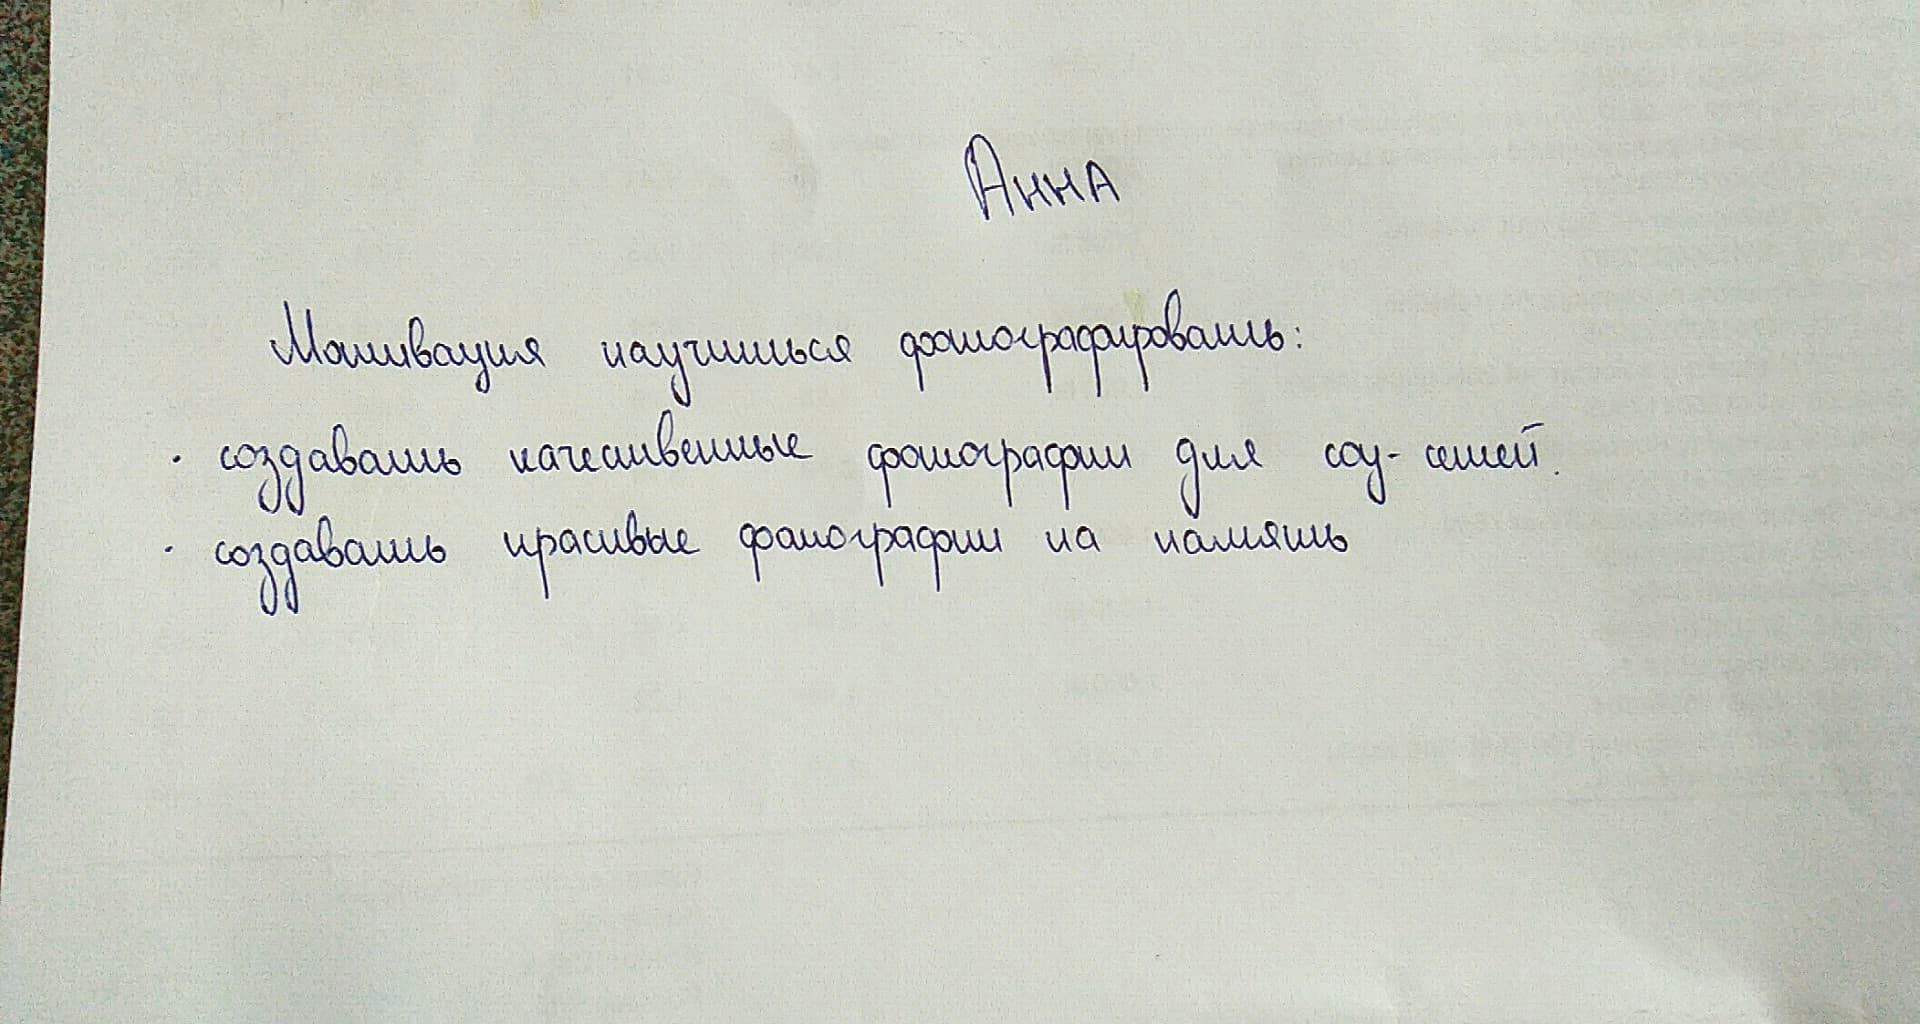 Анна
Мотивация научиться фотографировать:
· создавать качественные фотографии для соц-сетей.
· создавать красивые фотографии на память